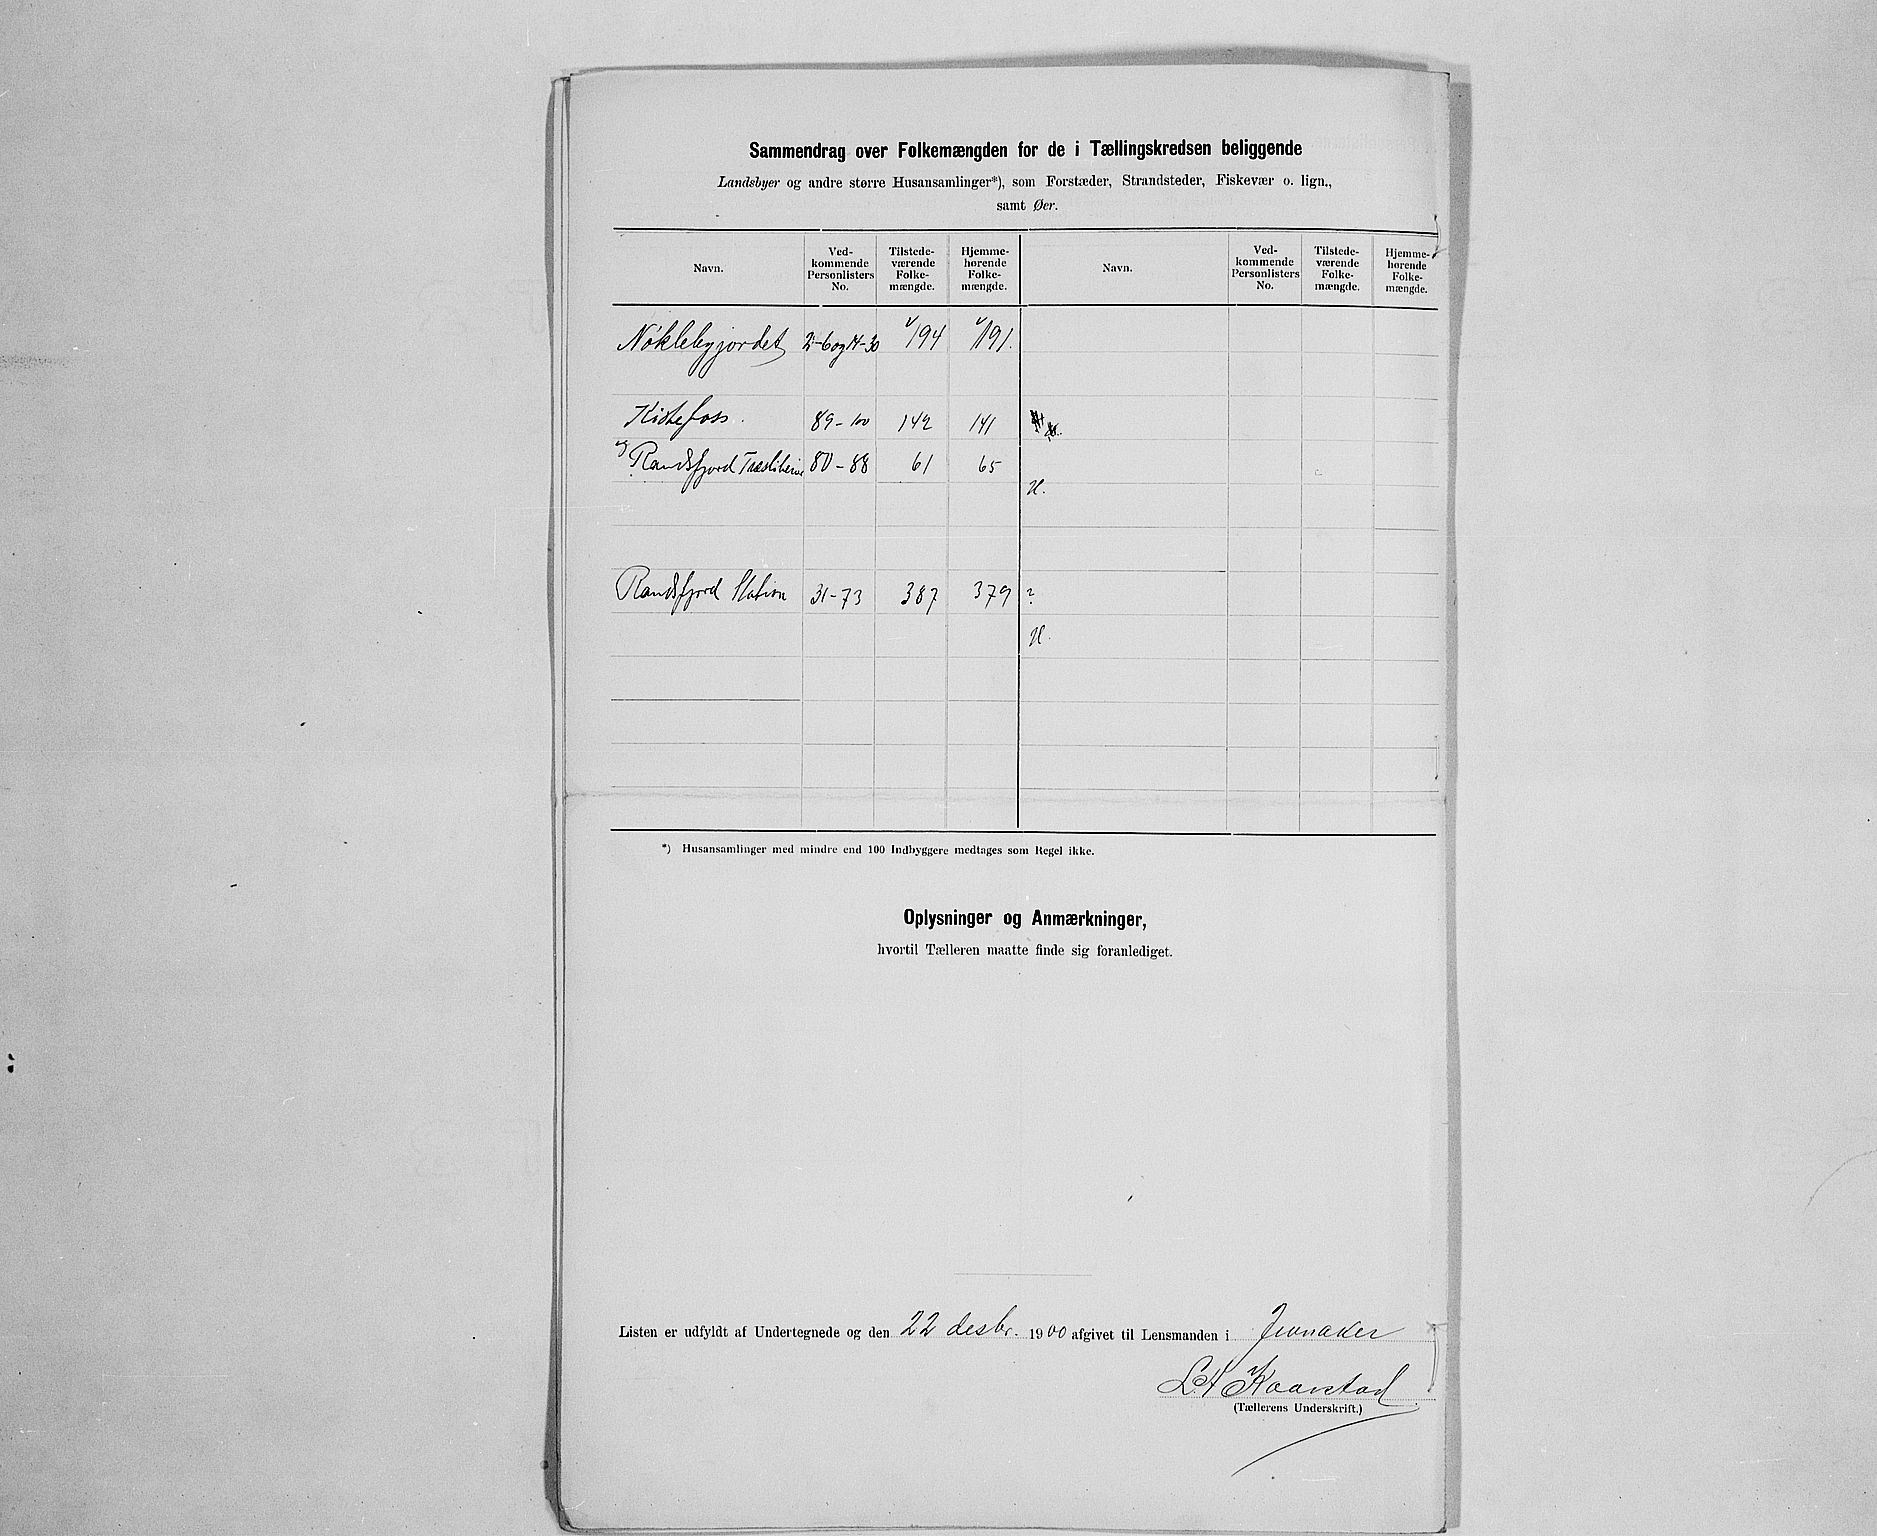 Sammendrag over Folkemængden for de i Tællingskredsen beliggende
Landsbyer og andre større Husansamlinger*), som Forstæder, Strandsteder, Fiskevær o. lign.,
samt Øer.
Navn. Ved-kommende Personlisters No. Tilstede-værende Folke-mængde. Hjemme-hørende Folke-mængde. Navn. Ved-kommende Personlisters No. Tilstede-værende Folke-mængde. Hjemme-hørende Folke-mængde.
Nøklebyjordet 2-6 og 14-30 194 191.
Kistefoss. 89-100 142 141
og Randsfjord Træsliberi 80-88 61 65
H.
Randsfjord Station 31-73 387 379 ?
H.
*) Husansamlinger med mindre end 100 Indbyggere medtages som Regel ikke.
Oplysninger og Anmærkninger,
hvortil Tælleren maatte finde sig foranlediget.
Listen er udfyldt af Undertegnede og den 22 desbr. 1900 afgivet til Lensmanden i Jevnaker
Kaarstad
(Tællerens Underskrift.)